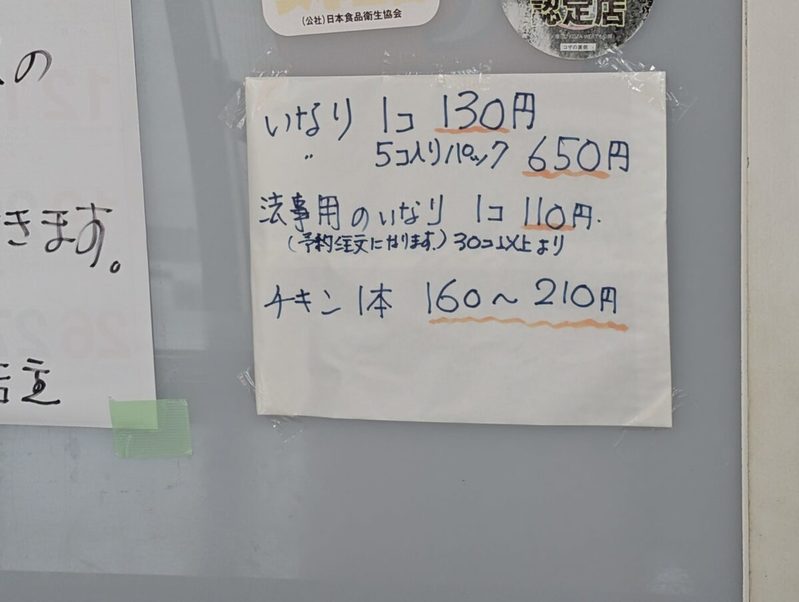 (公社)日本食品衛生協会
認定店
の
きます。
いなり 1コ 130円
〃 5コ入りパック 650円
法事用のいなり 1コ 110円.
(予約注文になります。) 30コ以上より
チキン 1本 160〜210円